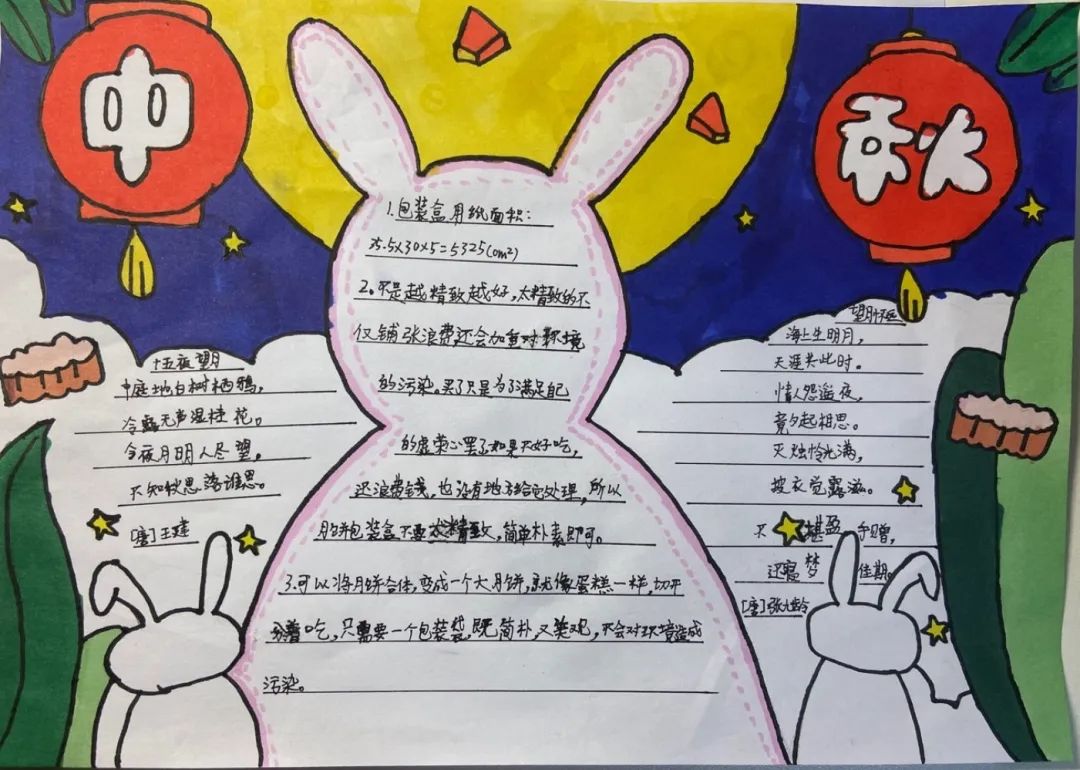 中
秋
1.包装盒用纸面积:
35.5×30×5=5325(cm²)
2.不是越精致越好,太精致的不
仅铺张浪费还会加重对环境
的污染。买了只是为了满足自己
的虚荣心罢了如果不好吃,
还浪费钱,也没有地方给它处理,所以
月饼包装盒不要太精致,简单朴素即可。
3.可以将月饼合体,变成一个大月饼,就像蛋糕一样,切开
分着吃,只需要一个包装袋,既简朴又美观,不会对环境造成
污染。
十五夜望月
中庭地白树栖鸦,
冷露无声湿桂花。
今夜月明人尽望,
不知秋思落谁思。
[唐]王建
望月怀远
海上生明月,
天涯共此时。
情人怨遥夜,
竟夕起相思。
灭烛怜光满,
披衣觉露滋。
不堪盈手赠,
还寝梦佳期。
[唐]张九龄